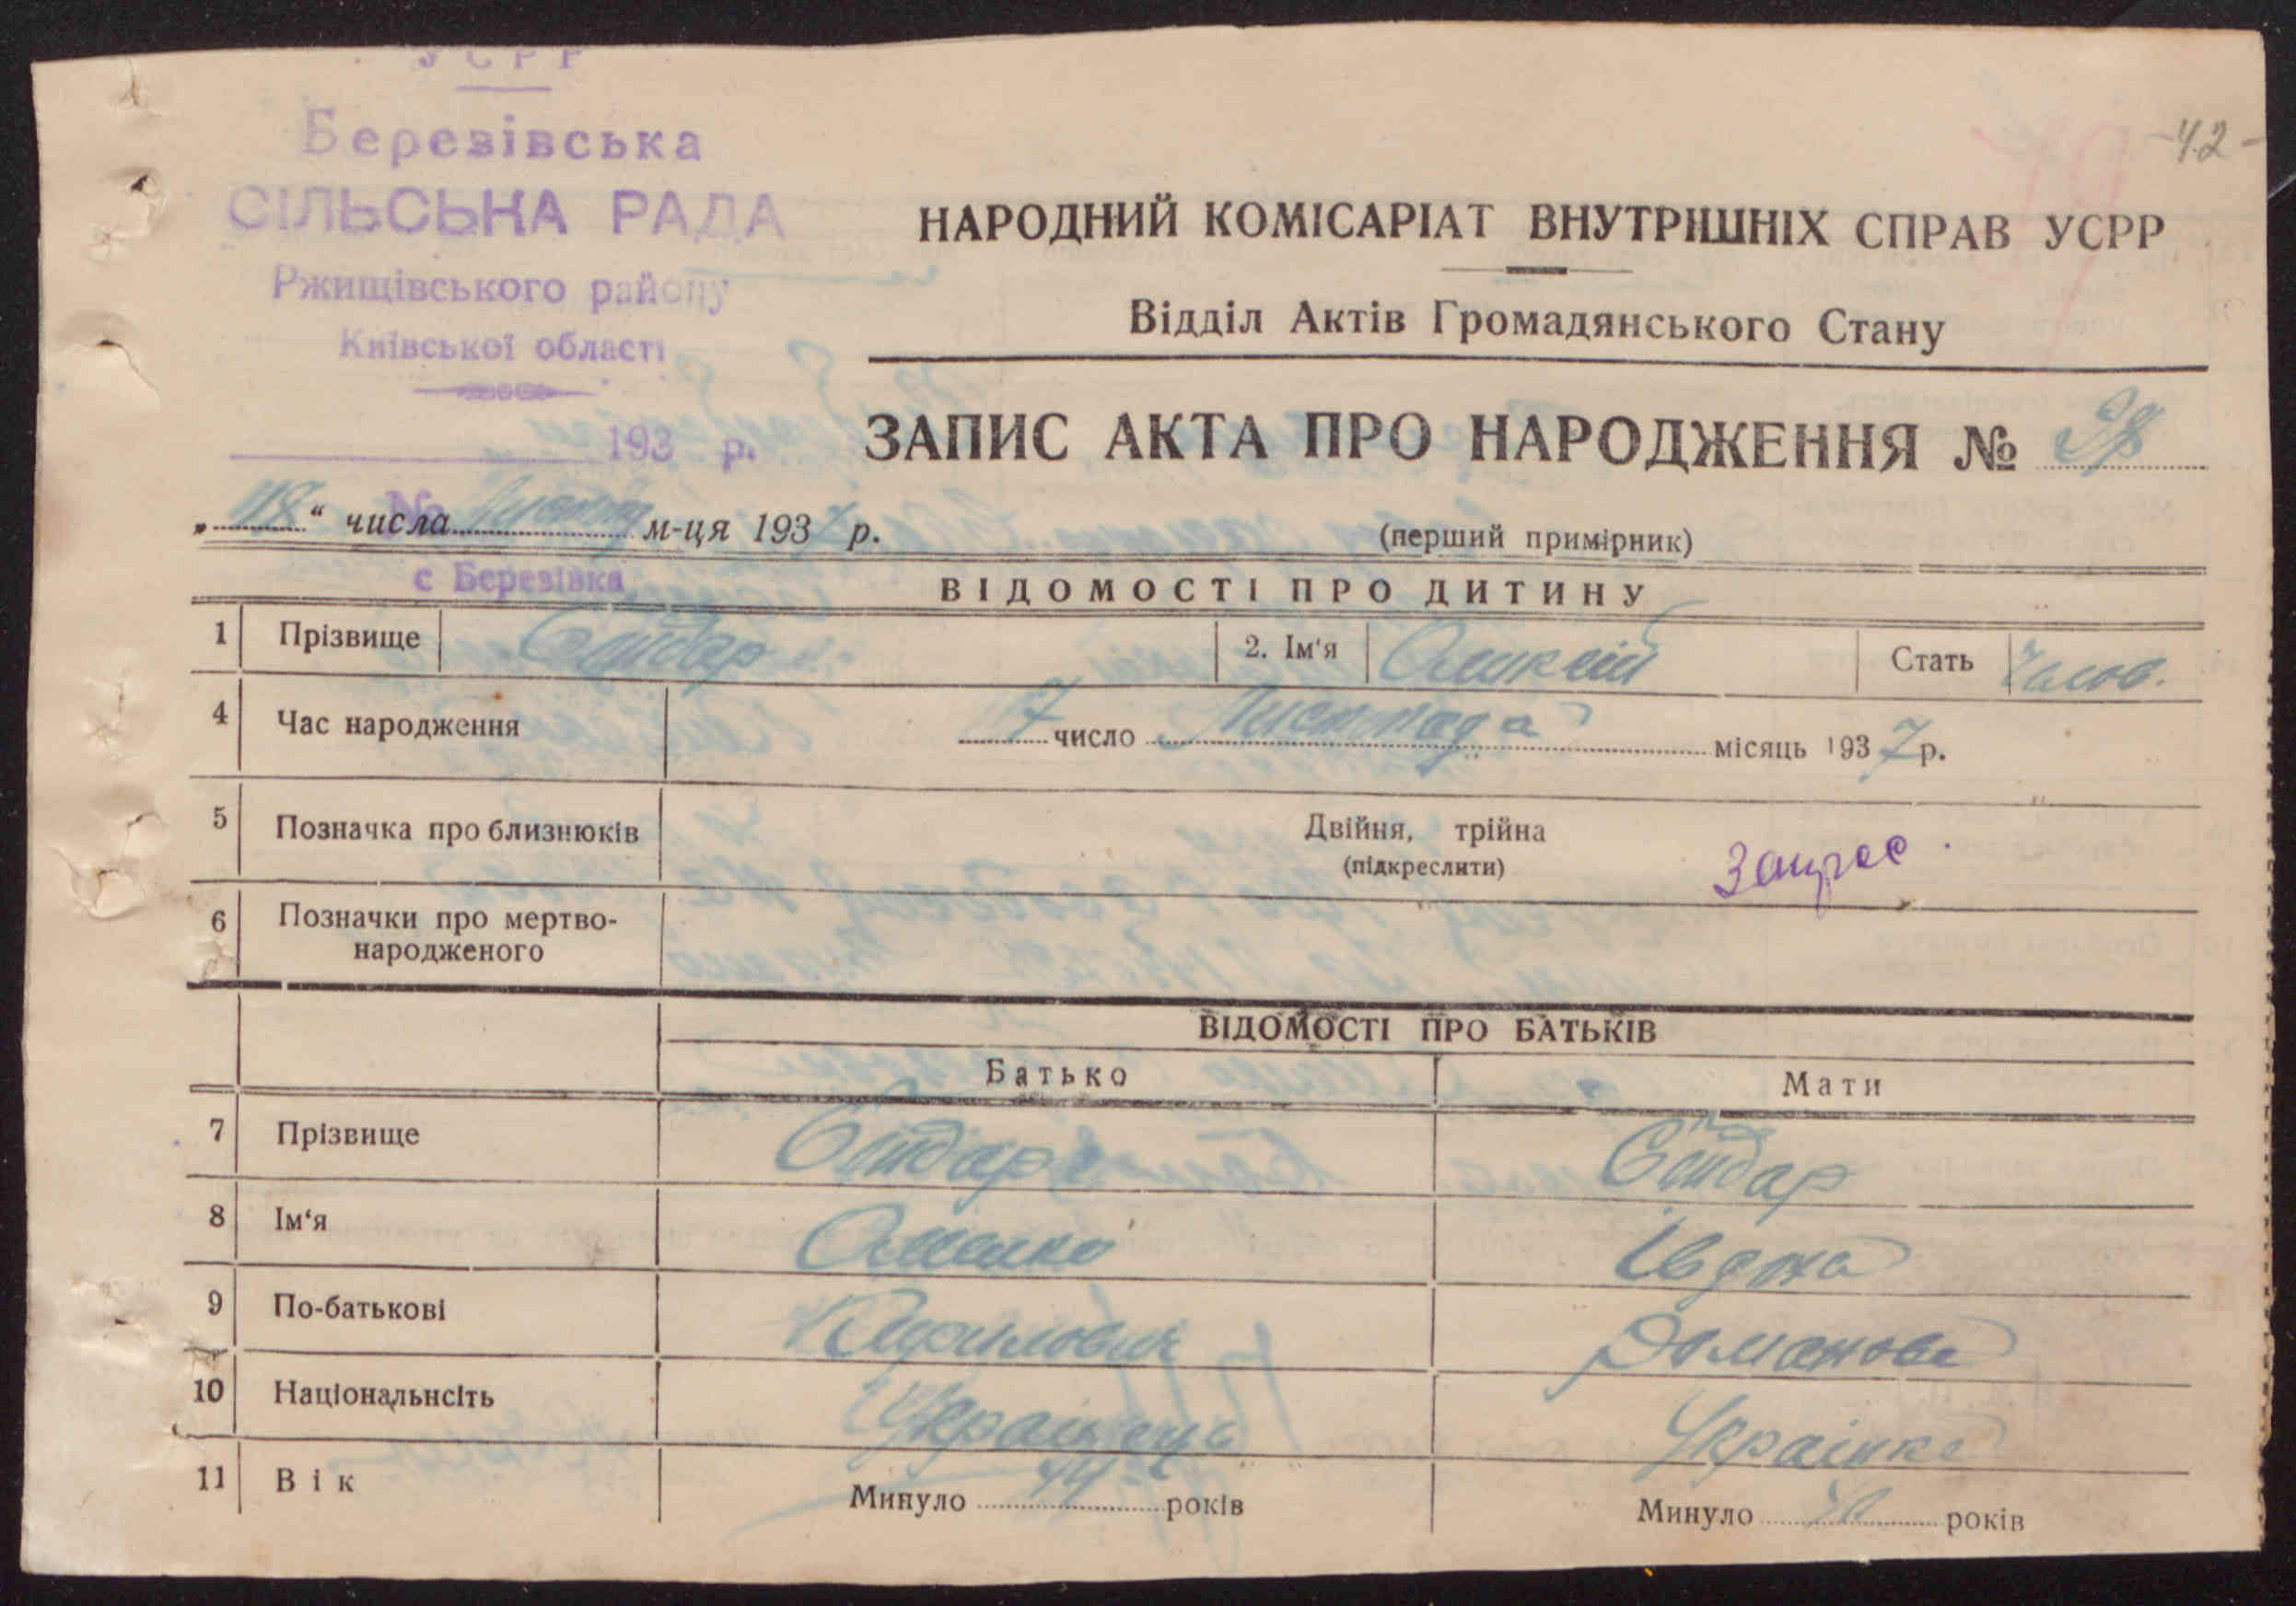 УСРР
Березівська
СІЛЬСЬКА РАДА
Ржищівського району
Київської області
193 р.
№
с Березівка
-42-
НАРОДНИЙ КОМІСАРІАТ ВНУТРІШНІХ СПРАВ УСРР
Відділ Актів Громадянського Стану
ЗАПИС АКТА ПРО НАРОДЖЕННЯ № 98
„18“ числа м-ця 1937 р.
(перший примірник)
ВІДОМОСТІ ПРО ДИТИНУ
1 Прізвище 2. Ім'я Оликсій Стать Чалов.
4 Час народження 7 число Листопада місяць 1937 р.
5 Позначка про близнюків Двійня, трійна
(підкреслити)
6 Позначки про мертво-
народженого
ВІДОМОСТІ ПРО БАТЬКІВ
Батько Мати
7 Прізвище
8 Ім'я
9 По-батькові Кирилович Романова
10 Національнсіть Українець Українка
11 Вік Минуло 44 років Минуло 40 років